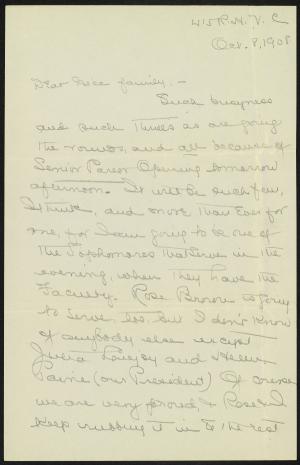 415 R. N. V. C
Oct. 8, 1908
Dear Dece family,-
Such busyness
and such times as are going
the rounds, and all because of
Senior Parlor Opening tomorrow
afternoon. It will be such fun,
I think, and more than ever for
me, for I am going to be one of
the Sophomores that serve in the
evening, when they have the
Faculty. Rose Brown is going
to serve, too, but I don't know
of anybody else except
Julia Lovejoy and Helen
Paine (our President) Of course
we are very proud, & Rose & I
keep rubbing it in to the rest